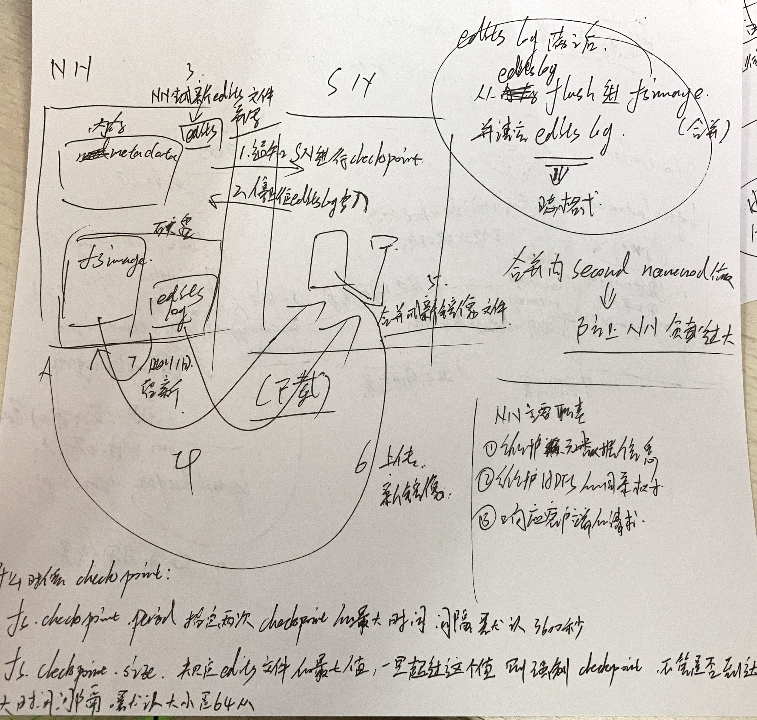 NN
SN
3.
NN创新edits文件
edits
内存
metadata
1.通知SN进行checkpoint
2.停止往edits log写入
磁盘
fsimage
edits
log
edits log满之后
edits log
从 flush 到 fsimage.
并清空 edits log.
(合并)
合并为 second namenode做
防止 NN 负责过大
5.
合并成新镜像文件
7
更新
(下载)
4
6 上传
新镜像.
NN主要职责
①维护元数据信息
②维护HDFS的目录树
③响应客户端的请求.
什么时候 checkpoint:
fs.checkpoint.period 指定两次 checkpoint 的最大时间间隔 默认 3600秒
fs.checkpoint.size. 规定 edits 文件的最大值,一旦超过这个值 则强制 checkpoint 不管是否到达
大时间间隔 默认大小是64M